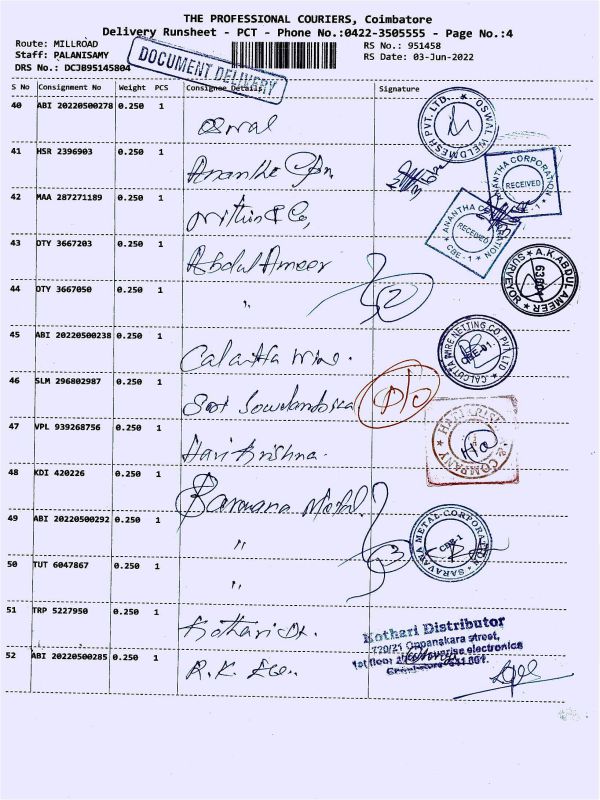 THE PROFESSIONAL COURIERS, Coimbatore
Delivery Runsheet - PCT - Phone No.:0422-3505555 - Page No.:4
Route: MILLROAD
RS No.: 951458
Staff: PALANISAMY
RS Date: 03-Jun-2022
DRS No.: DCJB95145804
DOCUMENT DELIVERY
S No Consignment No Weight PCS Consignee Details Signature
40 ABI 20220500278 0.250 1 Oswal
OSWAL WELDMESH PVT. LTD.
41 HSR 2396903 0.250 1 Anantha
ANANTHA CORPORATION RECEIVED CBE - 1
42 MAA 287271189 0.250 1 Nithin & Co,
ANANTHA CORPORATION RECEIVED CBE - 1
43 OTY 3667203 0.250 1 Abdul Ameer
A.K ABDUL AMEER SURVEYOR
44 OTY 3667050 0.250 1 "
45 ABI 20220500238 0.250 1 Calcutta Wire.
CALCUTTA WIRE NETTING CO. PVT. LTD CBE-01.
46 SLM 296802987 0.250 1
47 VPL 939268756 0.250 1 Hari Krishna.
& COMPANY
48 KDI 420226 0.250 1 Sarwana Metal
49 ABI 20220500292 0.250 1 "
SARAVANA METAL CORPORATION CBE-1
50 TUT 6047867 0.250 1 "
51 TRP 5227950 0.250 1 Kothari Di.
Kothari Distributor
720/21 Oppanakara street,
1st floor electronics
Coimbatore-641 001.
52 ABI 20220500285 0.250 1 R.K.